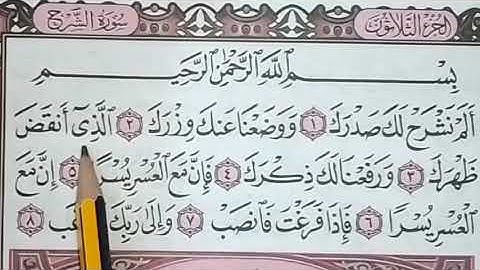 الجزء الثلاثون
سورة الشرح
بِسْمِ ٱللَّهِ ٱلرَّحْمَٰنِ ٱلرَّحِيمِ
أَلَمْ نَشْرَحْ لَكَ صَدْرَكَ ١ وَوَضَعْنَا عَنكَ وِزْرَكَ ٢ ٱلَّذِىٓ أَنقَضَ
ظَهْرَكَ ٣ وَرَفَعْنَا لَكَ ذِكْرَكَ ٤ فَإِنَّ مَعَ ٱلْعُسْرِ يُسْرًا ٥ إِنَّ مَعَ
ٱلْعُسْرِ يُسْرًا ٦ فَإِذَا فَرَغْتَ فَٱنصَبْ ٧ وَإِلَىٰ رَبِّكَ ٨